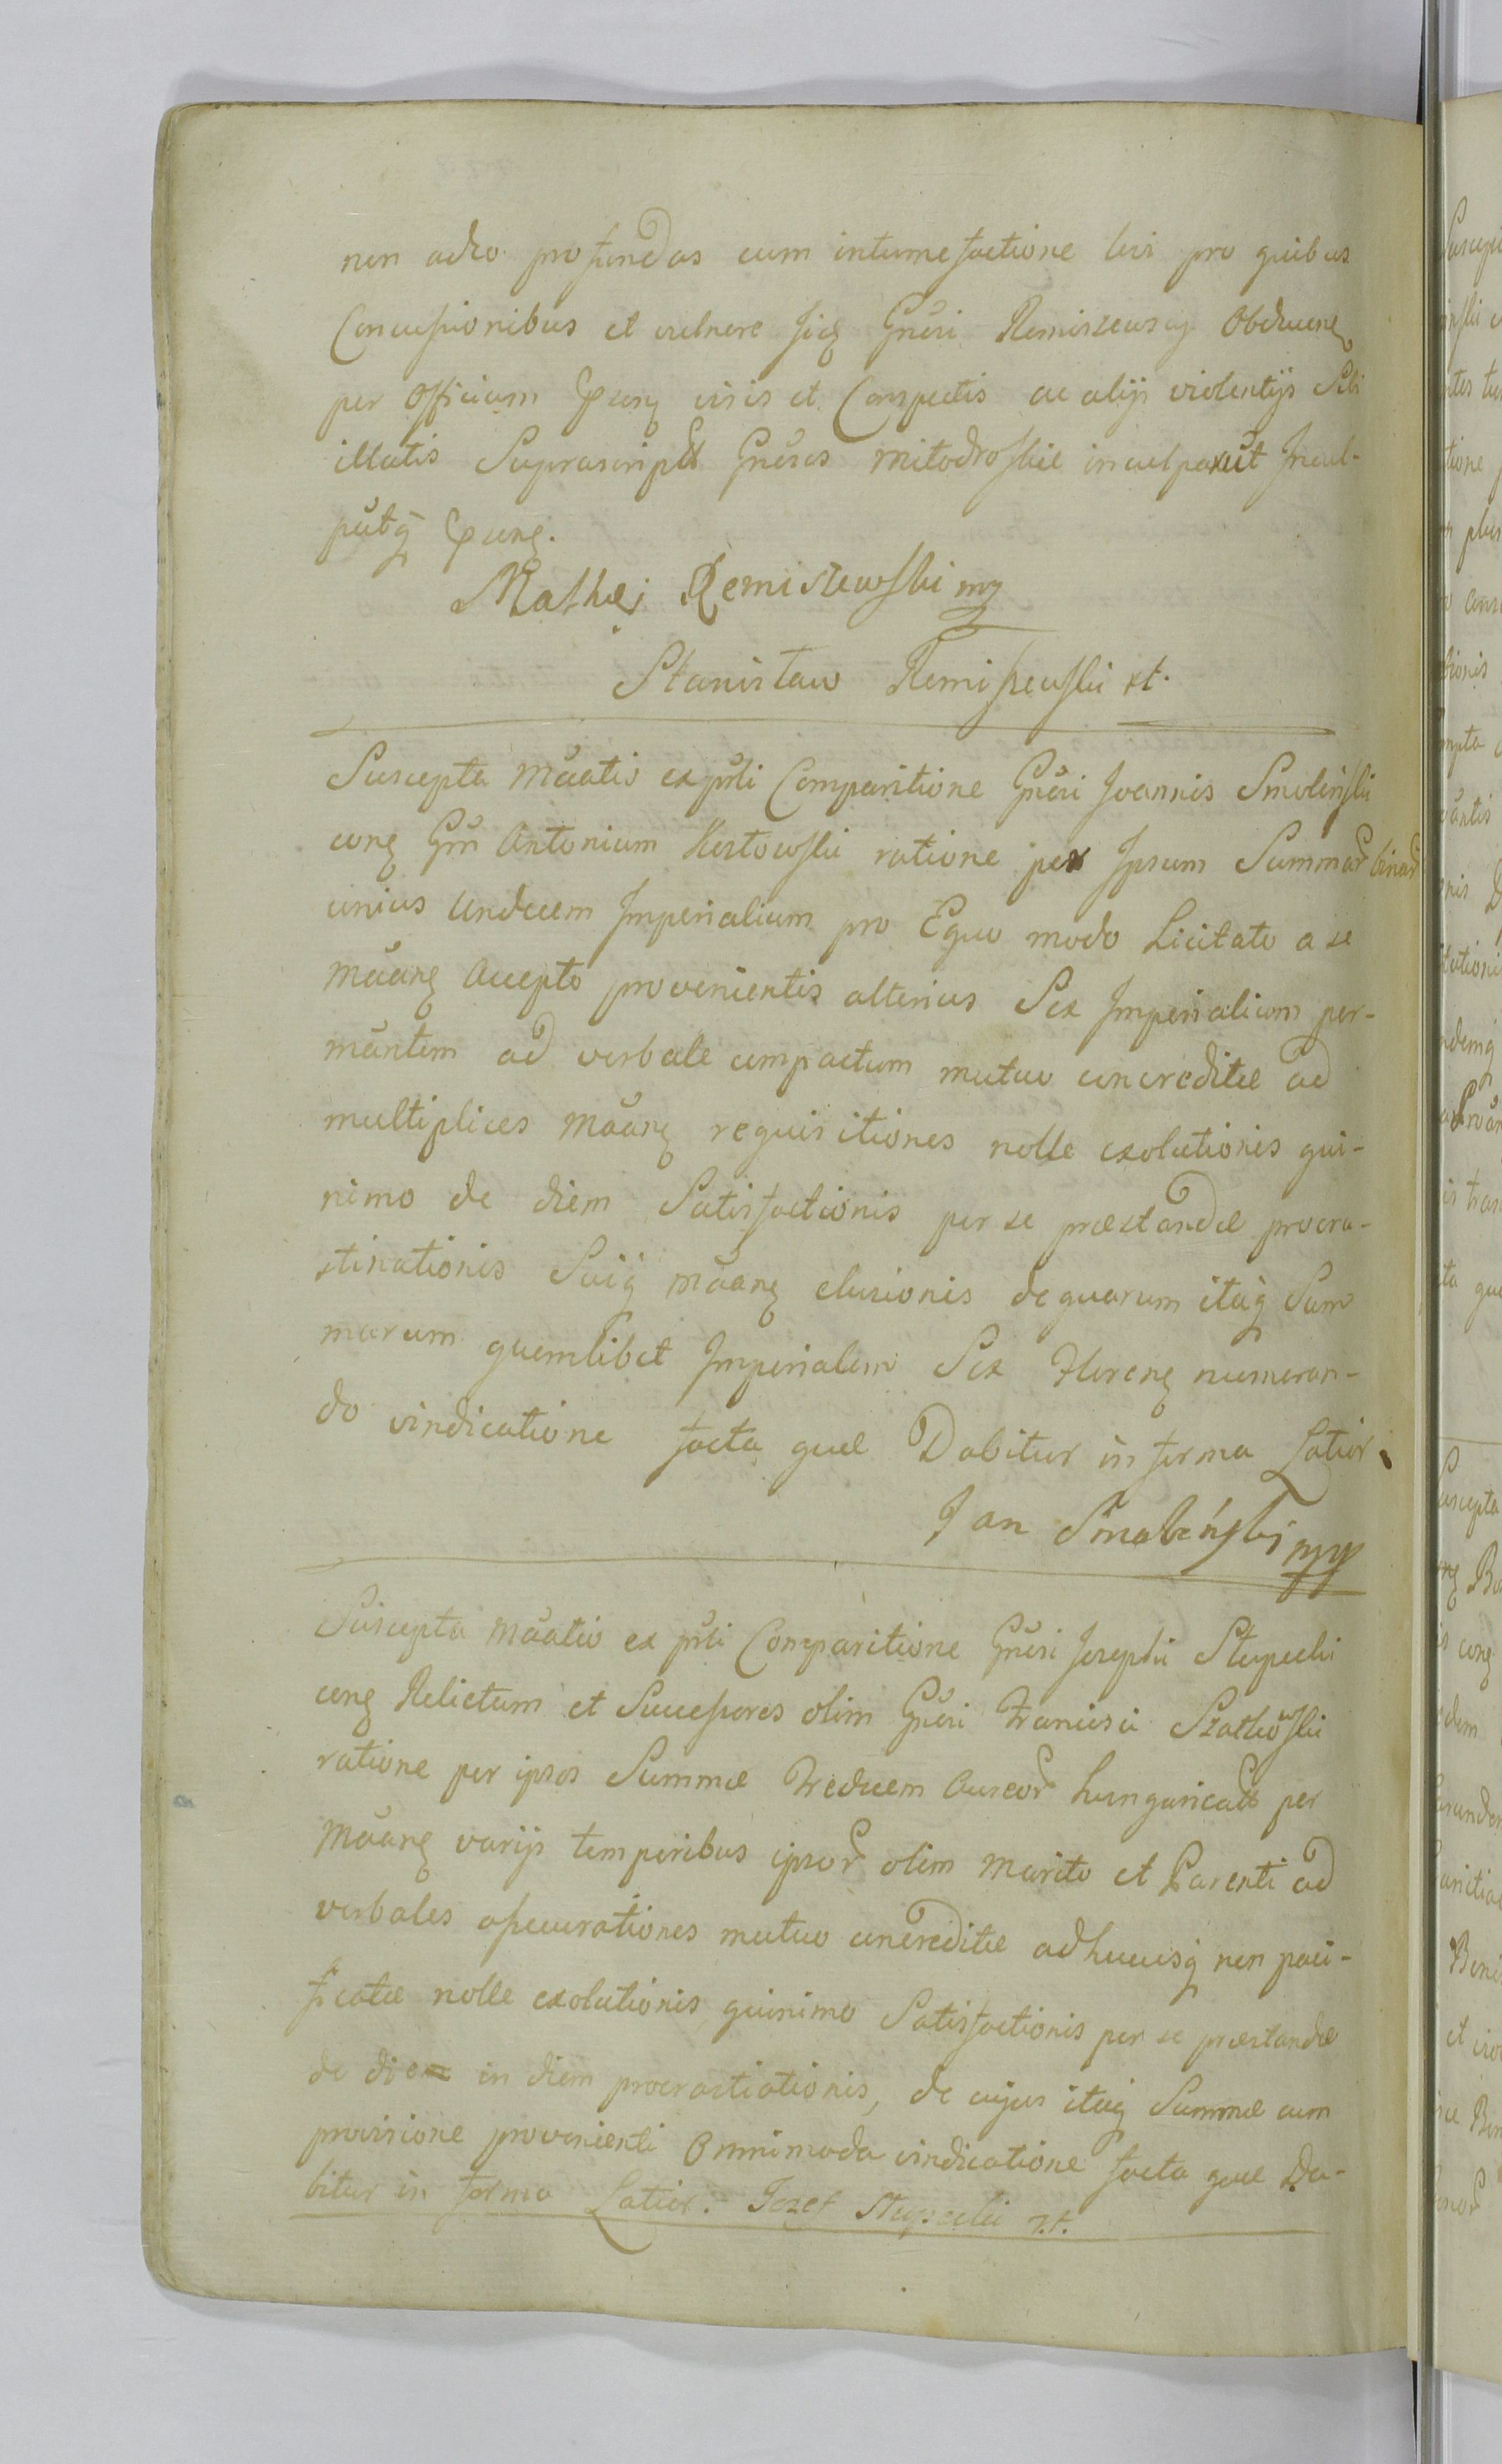 non adeo profundas cum intumefactione livi pro quibus
Concussionibus et vulnere sicq Gnësi Remiszewscy Obducenq
per Officium Pnsng visis et Conspectis ac alijs violentijs Sibi
illatis Suprascriptos Gnësos mitodroskie inculparüt Incul-
pütq̃
Mathei Remiszewski mp
Stanisław Remiszewski xt.
Suscepta Mäatio ex präti Comparitione Gnësi Joannis Smoliński
conq Gm Antonium Kostowski ratione per Ipsum Summar binar
unius Undecem Imperialium pro Equo modo Licitato a se
Mäanq Accepto provenientis alterius Sex Imperialium per-
mäntem ad verbale compactum mutuo concreditæ ad
multiplices Mäanq requisitiones nolle exolutionis qui-
nimo de diem Satisfactionis per se præstandæ procra-
stinationis Suiq̃ mäanq elusionis de quarum itaq̃ Sum
marum quemlibet Imperialem Sex Florenq numeran-
do vindicatione facta quæ Dabitur in forma Latior.
Jan Smoliński mp
Suscepta Mäatio ex präti Comparitione Gnësi Josephi Słupecki
conq Relictam et Successores olim Gnësi Francisci Szatkowski
ratione per ipsos Summæ Tredecem Aureor hungaricall per
Mäanq varijs temporibus ipsor olim Marito et Parenti ad
verbales assecurationes mutuo concreditæ adhucusq̃ non paci-
ficatæ nolle exolutionis, quinimo Satisfactionis per se præstandæ
de die in diem procrastiationis, de cujus itaq̃ Summæ cum
provisione provenienti Omnimoda vindicatione facta quæ Da-
bitur in forma Latior. Jozef Słupecki